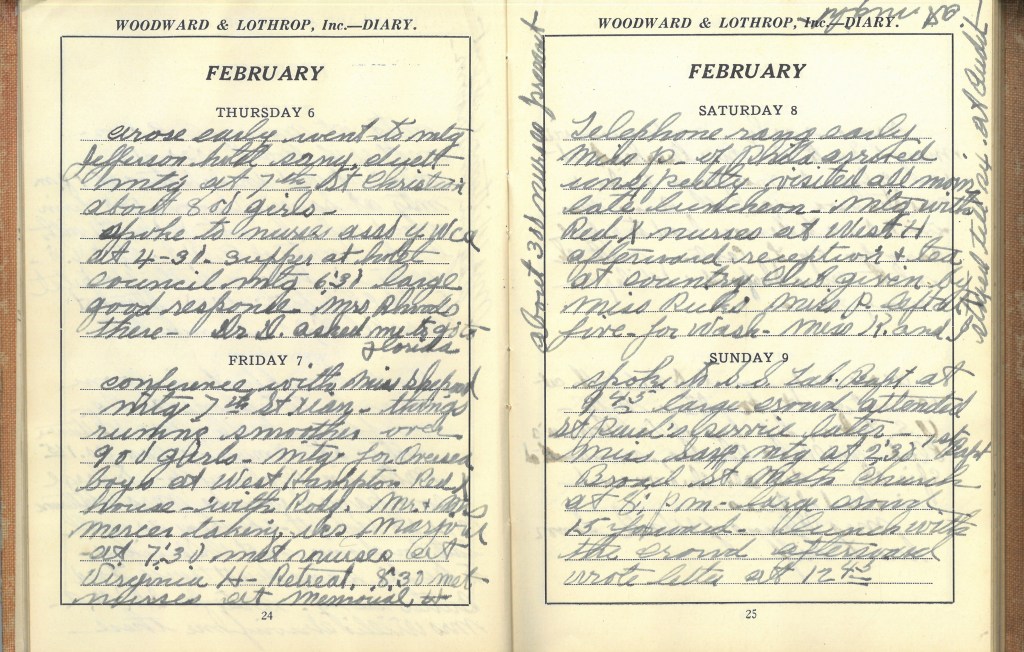 WOODWARD & LOTHROP, Inc.—DIARY.
FEBRUARY
THURSDAY 6
arose early went to mtg
Jefferson hotel
mtg at 7th St Christian
about 800 girls-
spoke to nurses assn y W c a
at 4-30. supper at hotel
council mtg 6:30 large
good response. Mrs Rhods
there - Dr D. asked me to go to
Florida
FRIDAY 7
conference with Miss
mtg 7th St Xian - things
running smoother over
900 girls - mtg. for Oversea
boys at West Hampton Red X
house - with Robt. Mr. + Mrs
Mercer taking us
at 7:30 met nurses at
Virginia H - Retreat. 8:30 met
nurses at Memorial H
24
WOODWARD & LOTHROP, Inc.—DIARY.
FEBRUARY
SATURDAY 8
Telephone rang early
Miss P. of Phila arrived
visited all morn
late luncheon. Mtg with
Red X nurses at West H
afterward reception + tea
at country club given by
Miss Miss R
five - for Wash - Miss R. and
SUNDAY 9
spoke to S. S. Tab. Bapt at
9 45 large crowd attended
St Paul's service later - 1st Bapt
Miss mtg at 2:30
Broad St Meth Church
at 8; p m - large crowd
15 forward - Lunch with
the crowd afterward
wrote letter at 12 45
25
about 300 nurses present
stayed till 24. at Audit